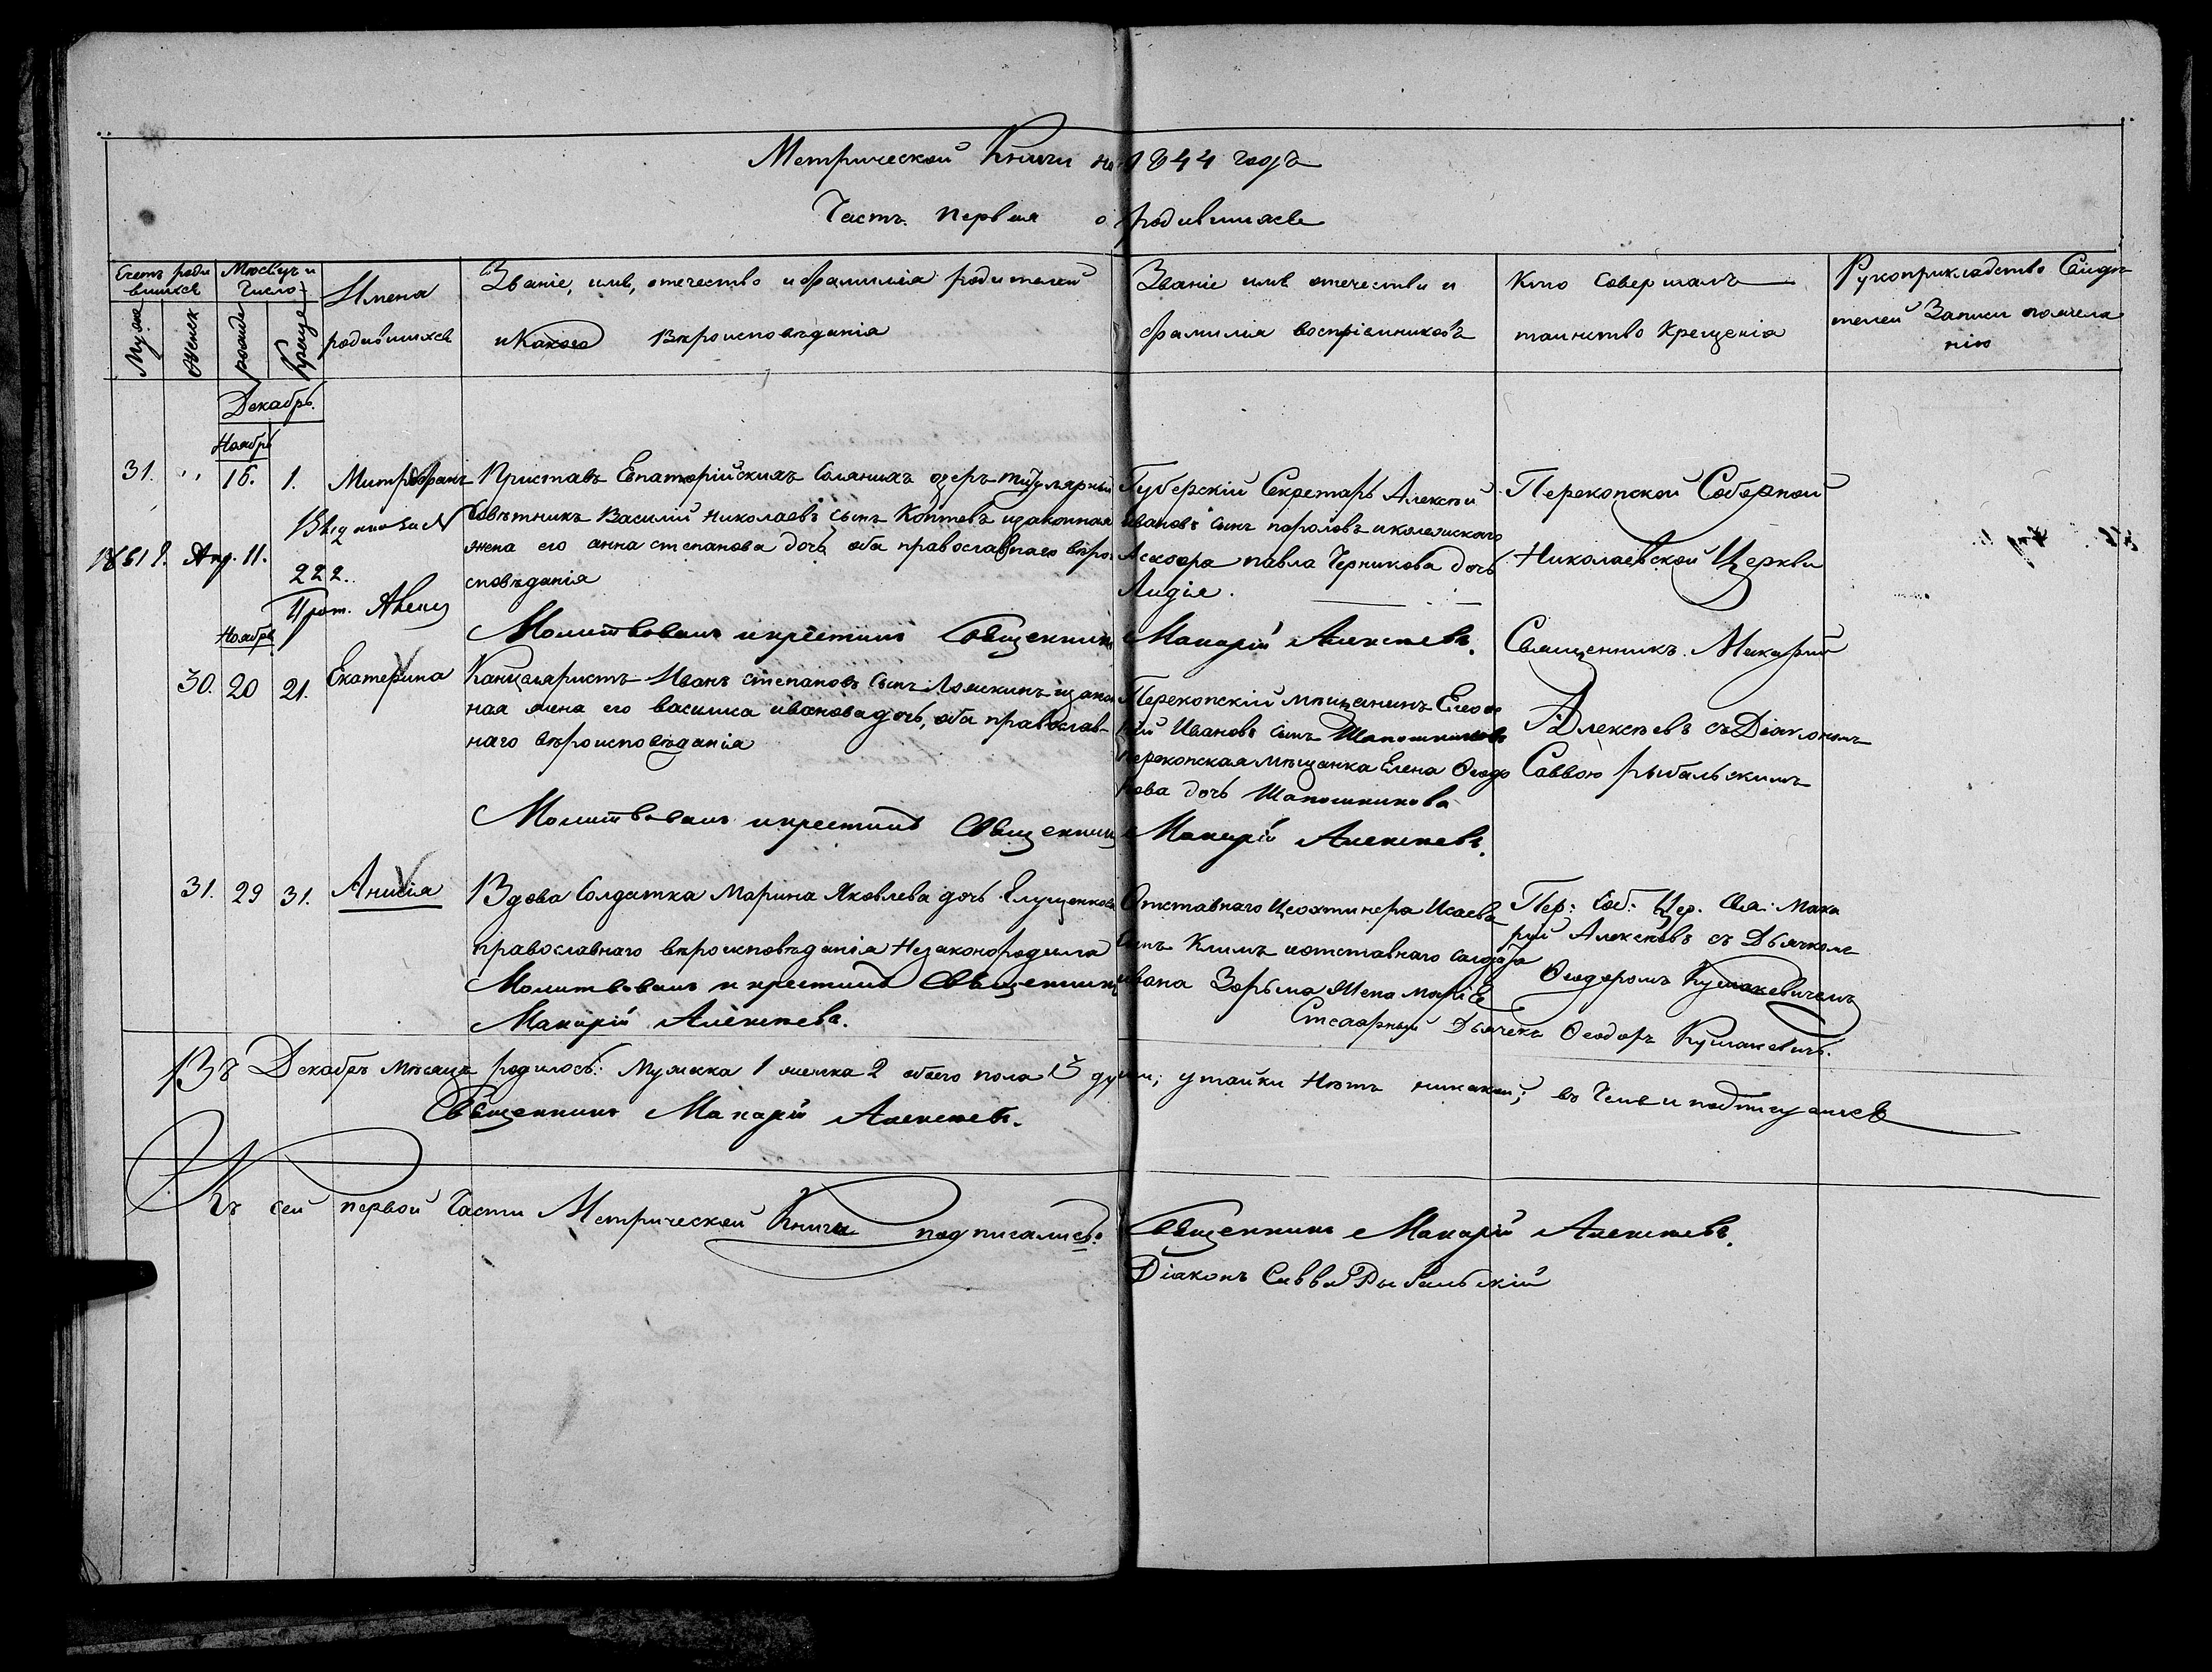 Метрической Книги на 1844 годъ
Часть первая о родившихся
Счетъ роди
вшихся
Мѣсяцъ и
Число
Имена
родившихся
Званіе, имя, отечество и фамилія родителей
и Какого Вѣроисповѣданія
Званіе имя отечество и
фамилія воспріемниковъ
Кто совершалъ
таинство Крещенія
Рукоприкладство Свидѣ-
телей Записи по желa
нію
Муже
Женск
рожде
Креще
Декабрь.
Ноябрь
31. " 16. 1. Митрофанъ
Приставъ Евпаторійскихъ Соляныхъ озеръ титулярный
Совѣтникъ Василій Николаевъ сынъ Коптевъ и законная
жена его анна степанова дочь оба православнаго вѣрои
сповѣданія
Выдано за №
1861 г. Апр. 11.
222.
Прот.
Губерскій Секретарь Алексѣй
Ивановъ сынъ пороловъ и колежскаго
Асесора павла Черникова дочь
Лидія.
Перекопской Соборной
Николаевской Церкви
Молитвовалъ и крестилъ Священникъ Макарій Алексѣевъ.
Священникъ Макарій
Алексѣевъ съ Діакономъ
Саввою рыбальскимъ
Ноябрь
30. 20 21. Екатерина
Канцеляристъ Иванъ степановъ сынъ Ломкинъ и закон
ная жена его василиса иванова дочь, оба православ-
наго вѣроисповѣданія
Перекопскій мѣщанинъ
Ивановъ сынъ Шапошниковъ
перекопская мѣщанка Елена Ѳеодо
рова дочь Шапошникова
Молитвовалъ и крестилъ Священникъ Макарій Алексѣевъ.
31. 29 31. Анисія
Вдова Солдатка Марина Яковлева дочь Глущенкова
православнаго вѣроисповѣданія Незаконородила
Молитвовалъ и крестилъ Священникъ
Макарій Алексѣевъ.
Отставнаго Исаева
сынъ Климъ и отставнаго солдата
ивана Зорьма жена Марія
Пер: Соб: Цер. Свя: Мака
рій Алексѣевъ съ Дьячкомъ
Ѳеодоромъ Кушакевичемъ
Дьячекъ Ѳеодоръ Кушакевичъ.
Въ Декабрѣ мѣсяцѣ родилось: Мужска 1 женска 2 обоего пола 3 души; утайки Нѣтъ никакой; въ чемъ и подписуемся
Священникъ Макарій Алексѣевъ.
Къ сей первой Части Метрической Книги подписались:
Священникъ Макарій Алексѣевъ.
Діаконъ Савва Рыбальскій